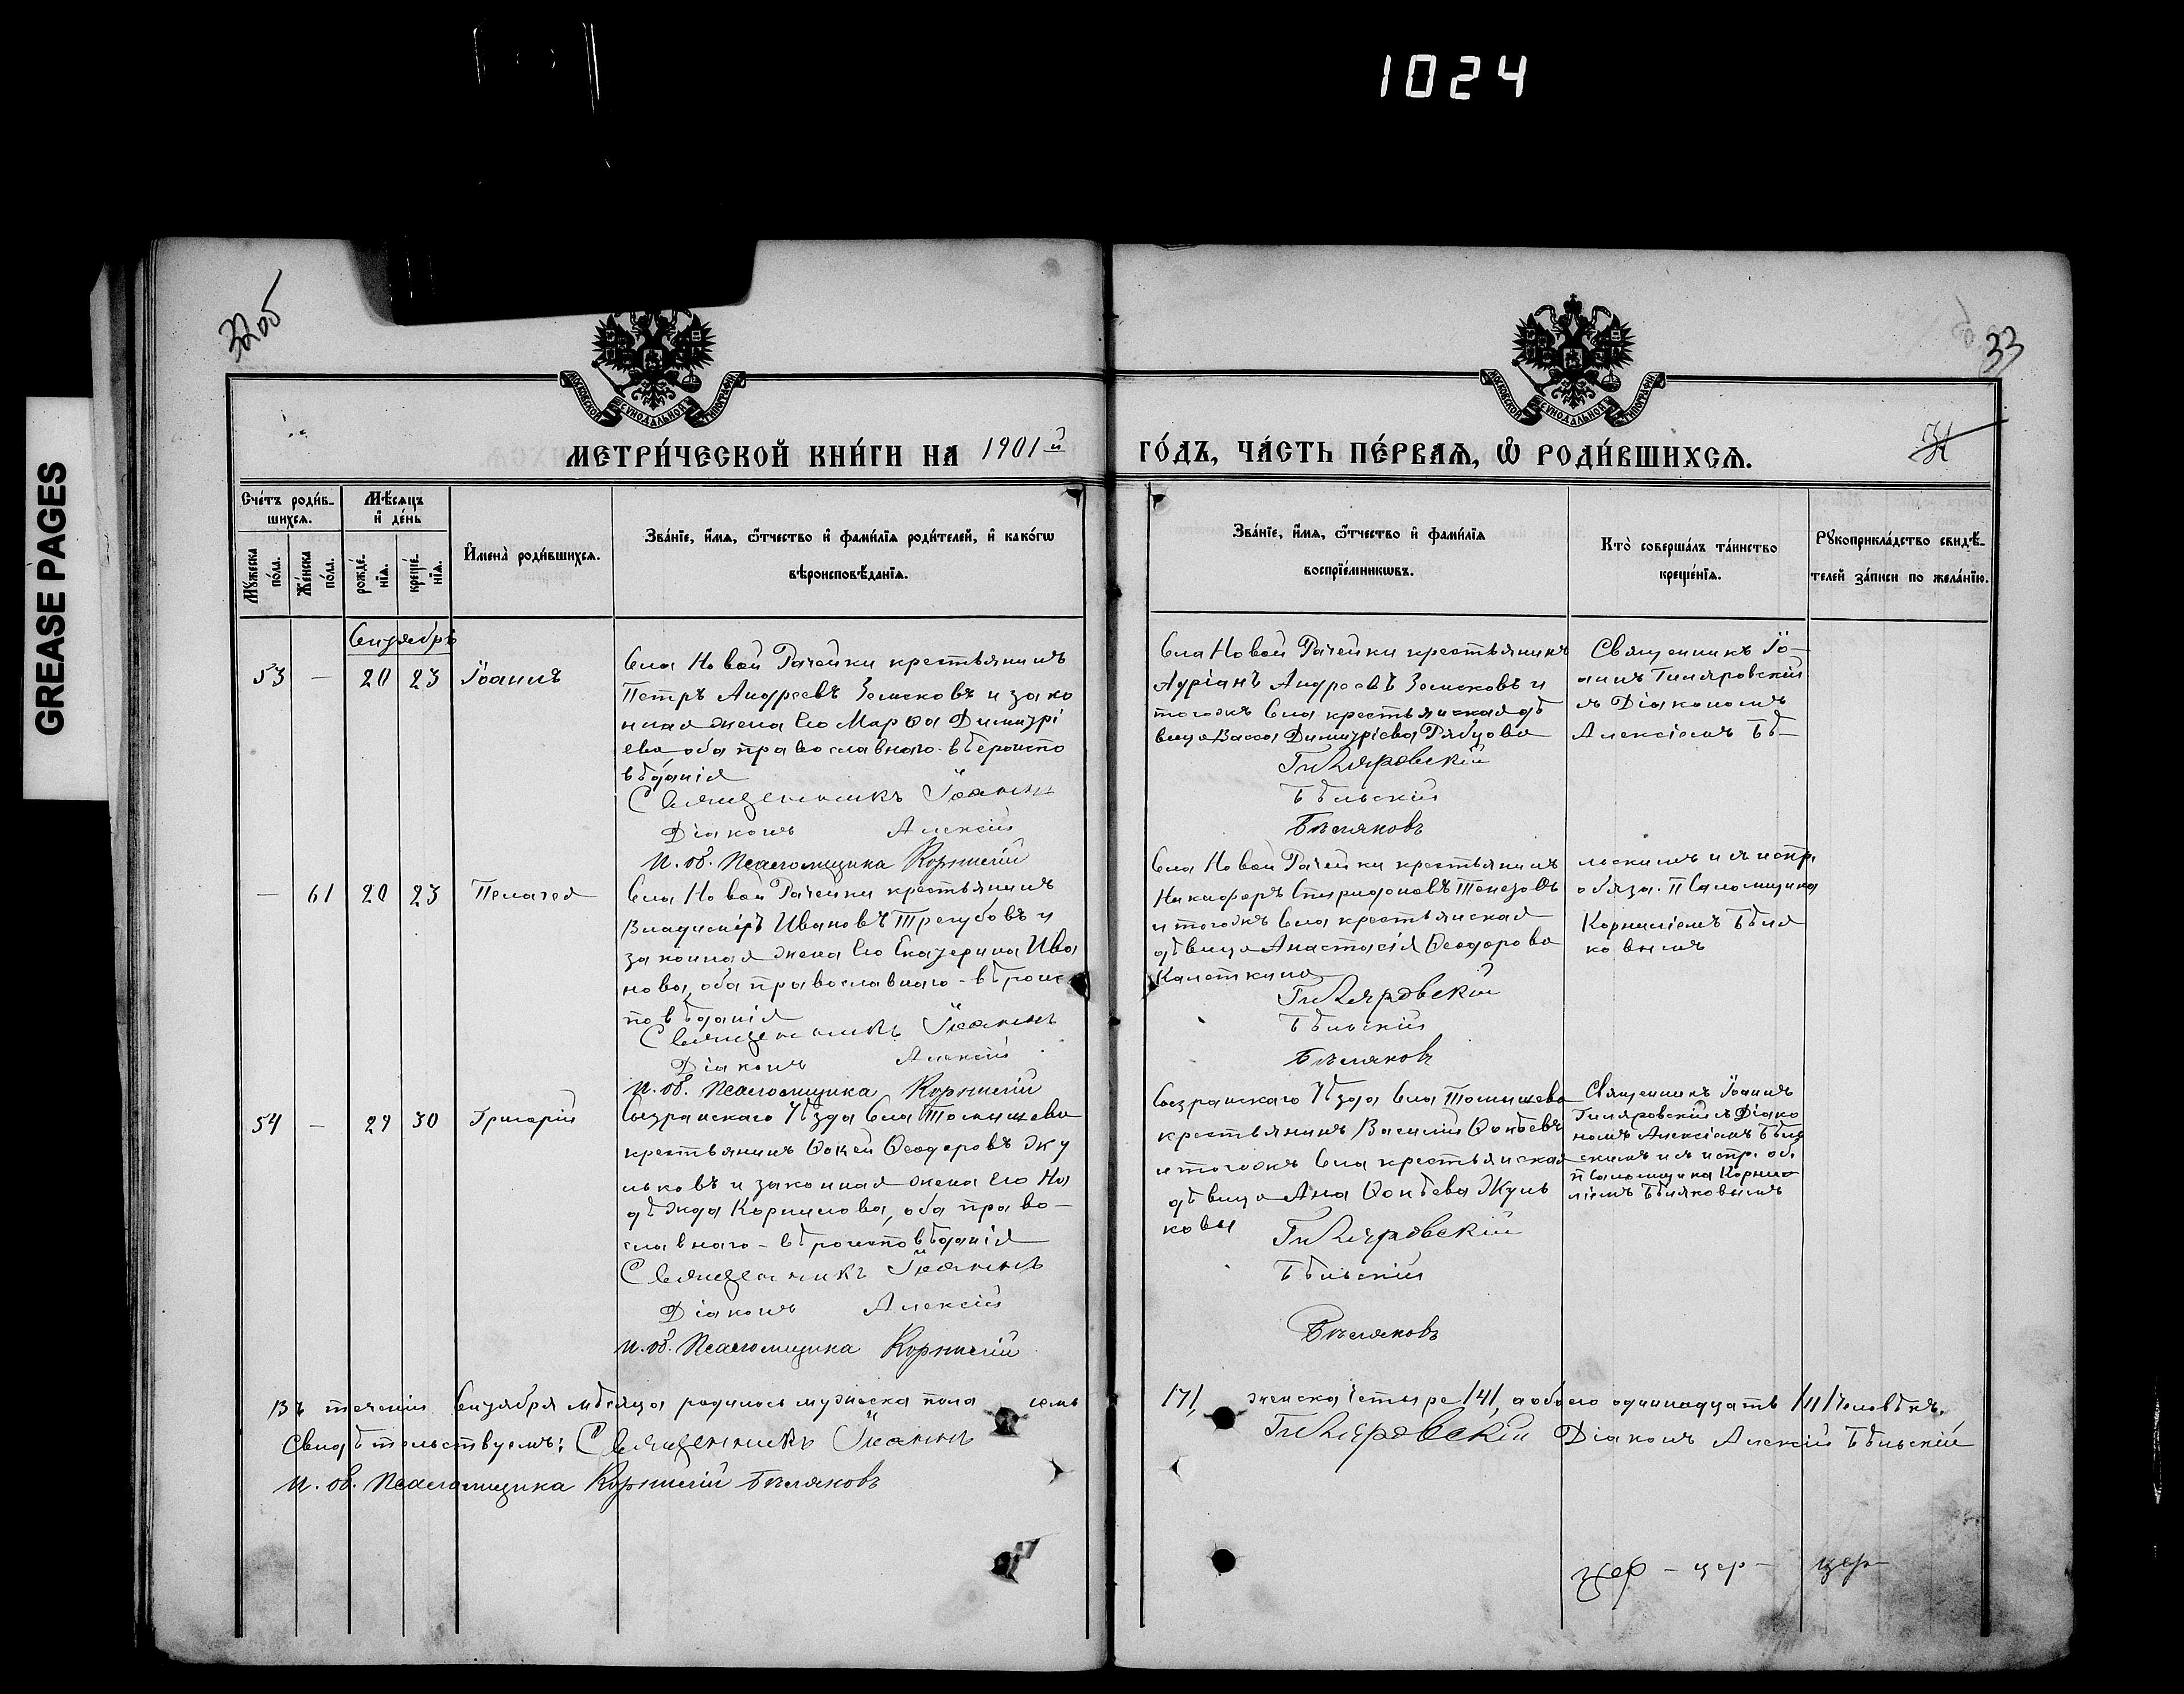 1024
GREASE PAGES
32 об
33
МОСКОВСКОЙ СѴНОДАЛЬНОЙ ТИПОГРАФІИ
МОСКОВСКОЙ СѴНОДАЛЬНОЙ ТИПОГРАФІИ
МЕТРИ́ЧЕСКОЙ КНИ́ГИ НА 1901 й
ГО́ДЪ, ЧА́СТЬ ПЕ́РВАѦ, Ѿ РОДИ́ВШИХСѦ.
Сче́тъ роди́в-
шихсѧ.
Мꙋжеска
по́ла.
Же́нска
по́ла.
Мѣ́сѧцъ
и҆ де́нь
рожде́-
нїѧ.
креще́-
нїѧ.
И҆мена̀ роди́вшихсѧ.
Зва́нїе, и҆́мѧ, ѻ҆́тчество и҆ фами́лїѧ роди́телей, и҆ како́гѡ
вѣроисповѣ́данїѧ.
Зва́нїе, и҆́мѧ, ѻ҆́тчество и҆ фами́лїѧ
воспрїе́мникѡвъ.
Кто̀ соверша́лъ та́инство
креще́нїѧ.
Рꙋкоприкла́дство свидѣ́-
телей за́писи по жела́нїю.
Сентябрь
53 — 20 23 Іоаннъ
Села Новой Рачейки крестьянинъ
Петръ Андреевъ Земсковъ и зако
нная жена его Марѳа Димитрі
ева оба православнаго вѣроиспо
вѣданія
Священникъ Іоаннъ
Діаконъ Алексій
И. об. Псаломщика Корнилій
Села Новой Рачейки крестьянинъ
Адріанъ Андреевъ Земсковъ и
тогожъ села крестьянская дѣ
вица Васса Димитріева Рябцова
Гиляровскій
Бѣльскій
Бѣляковъ
Священникъ Іо-
аннъ Гиляровскій
съ Діакономъ
Алексіемъ Бѣ-
— 61 20 23 Пелагея
Села Новой Рачейки крестьянинъ
Владиміръ Ивановъ Трегубовъ и
законная жена его Екатерина Ива
нова, оба православнаго - вѣроис
повѣданія
Священникъ Іоаннъ
Діаконъ Алексій
И. об. Псаломщика Корнилій
Села Новой Рачейки крестьянинъ
Никифоръ Спиридоновъ
и тогожъ села крестьянская
дѣвица Анастасія Ѳеодорова
Калеткина
Гиляровскій
Бѣльскій
Бѣляковъ
льскимъ и съ испр.
обяза. Псаломщика
Корниліемъ Бѣля
ковымъ
54 — 29 30 Григорій
Сызранскаго Уѣзда Села Томышева
крестьянинъ Ѳокей Ѳеодоровъ Жу
льковъ и законная жена его На
дѣжда Корнилова, оба право-
славнаго - вѣроисповѣданія
Священникъ Іоаннъ
Діаконъ Алексій
И. об. Псаломщика Корнилій
Сызранскаго Уѣзда Села Томышева
крестьянинъ Василій Ѳокѣевъ
и тогожъ Села крестьянская
дѣвица Ана Ѳокѣева Жуль
ковы
Гиляровскій
Бѣльскій
Бѣляковъ
Священникъ Іоаннъ
Гиляровскій съ Діако
номъ Алексіемъ Бѣль
скимъ и съ испр. об.
псаломщика Корни
ліемъ Бѣляковымъ
Въ теченіи Сентября мѣсяца родилось мужеска пола семь /7/, женска четыре /4/, а обоего одиннадцать /11/ человѣкъ.
Свидѣтельствуемъ: Священникъ Іоаннъ Гиляровскій Діаконъ Алексій Бѣльскій
И. об. Псаломщика Корнилій Бѣляковъ